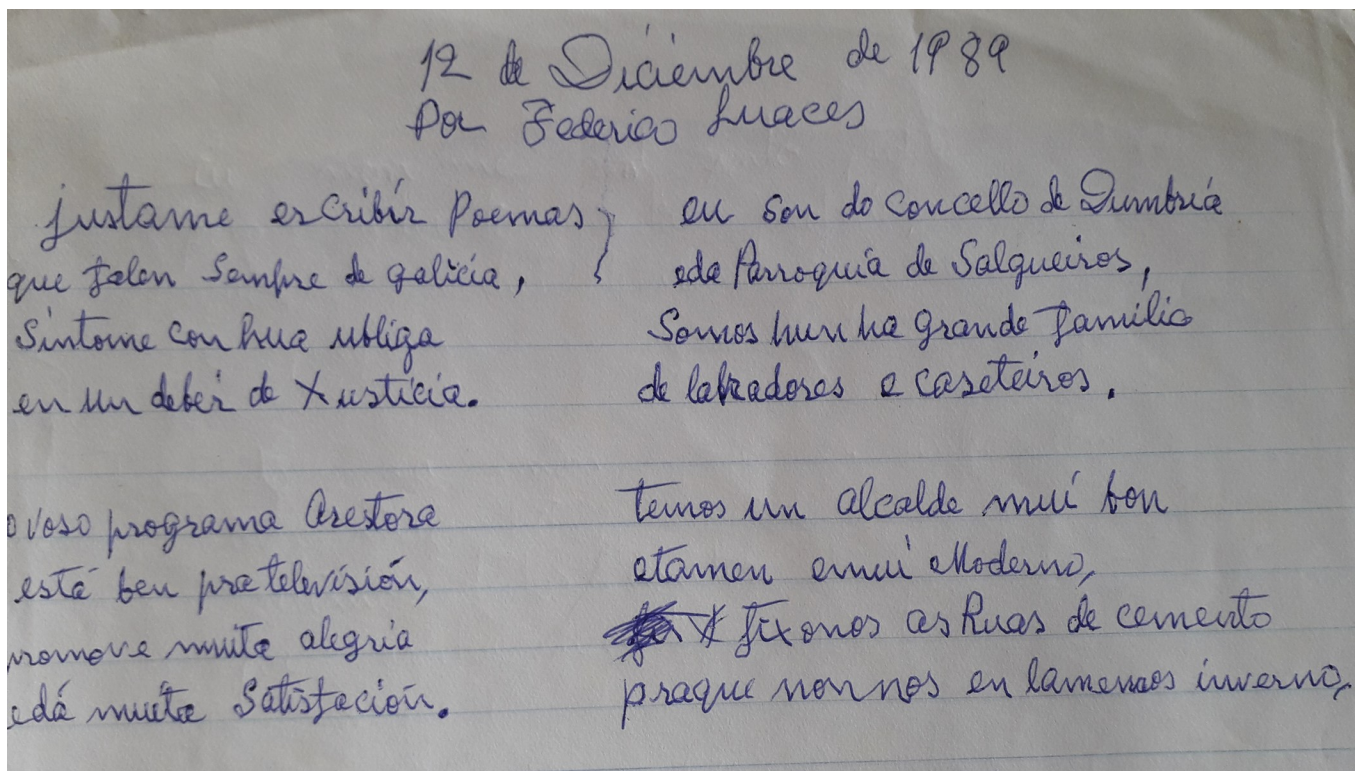 12 de Diciembre de 1989
Por Federico Luaces
justame escribír Poemas
que falen Sempre de galicia,
Síntome con hua ubliga
en un deber de Xusticia.
o voso programa Arestora
está ben pra televísión,
promove muita alegria
edá muita Satisfación.
eu son do concello de Dumbría
eda Parroquia de Salgueiros,
Somos hunha grande familia
de labradores e caseteiros.
temos un alcalde mui bon
etamen emui Moderno,
fixonos as Ruas de cemento
praque non nos en lamemos inverno,